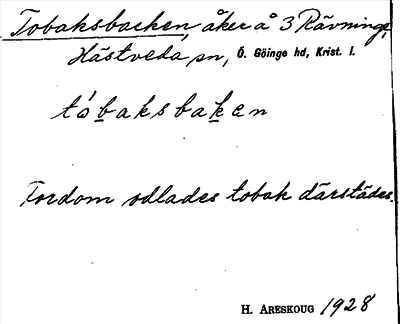 Tobaksbacken, åker å 3 Rävninge,
Hästveda sn, Ö. Göinge hd, Krist. l.
tòbaksbaken
Fordom odlades tobak därstädes.
H. ARESKOUG 1928